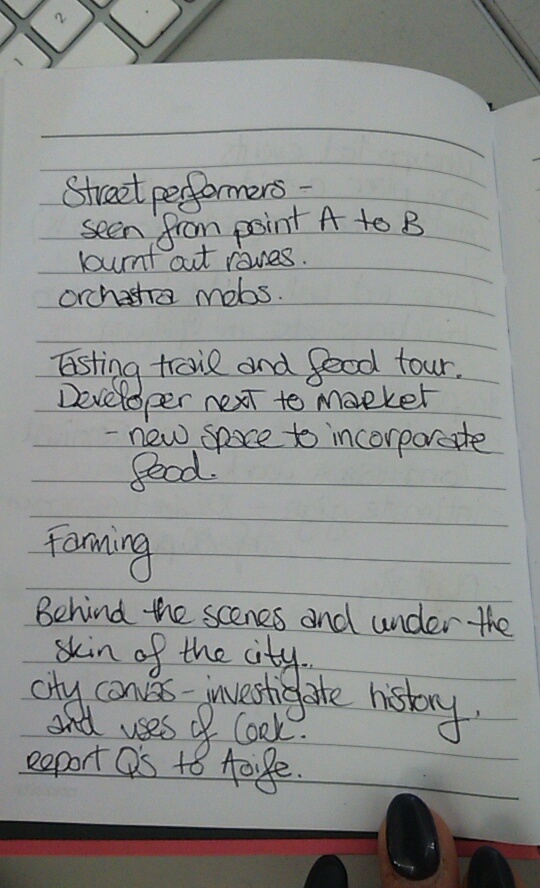 Street performers -
seen from point A to B
burnt out raves.
orchastra mobs.
Tasting trail and food tour.
Developer next to market
- new space to incorporate
food.
Farming
Behind the scenes and under the
skin of the city..
city canvas - investigate history,
and uses of Cork.
report Q's to Aoife.